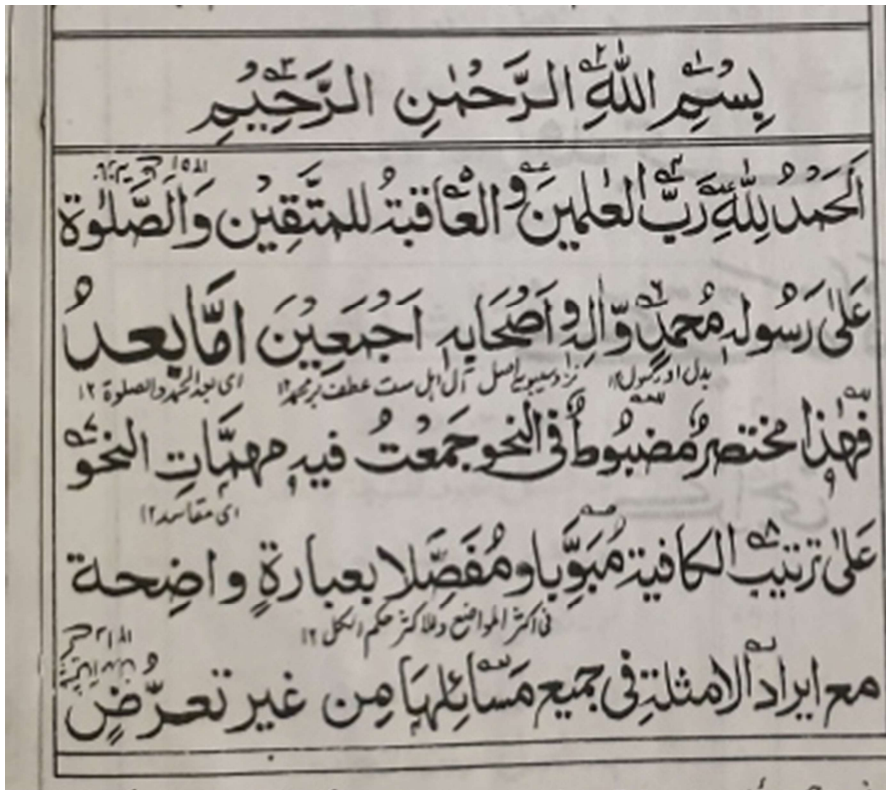 بِسْمِ اللهِ الرَّحْمٰنِ الرَّحِيْمِ
اَلْحَمْدُ لِلّٰهِ رَبِّ الْعٰلَمِيْنَ وَالْعَاقِبَةُ لِلْمُتَّقِيْنَ وَالصَّلٰوةُ
عَلٰى رَسُوْلِهٖ مُحَمَّدٍ وَّاٰلِهٖ وَاَصْحَابِهٖ اَجْمَعِيْنَ اَمَّا بَعْدُ
بدل او رسول ١٢ نزد سیبویہ اصل آل اہل ست عطف بر محمد ١٢ ای بعد الحمد والصلوة ١٢
فَهٰذَا مختصرٌ مَضْبُوْطٌ فِى النحو جَمَعْتُ فِيْهِ مُهِمَّاتِ النحو
ای مقاصد ١٢
عَلٰى تَرْتِيْبِ الكافيةِ مُبَوِّبًا ومُفَصِّلًا بعبارةٍ واضِحة
فی اکثر المواضع وللاکثر حکم الکل ١٢
مع ايراد الامثلةِ فِى جميع مَسَائِلِهَا مِن غير تعرُّضٍ